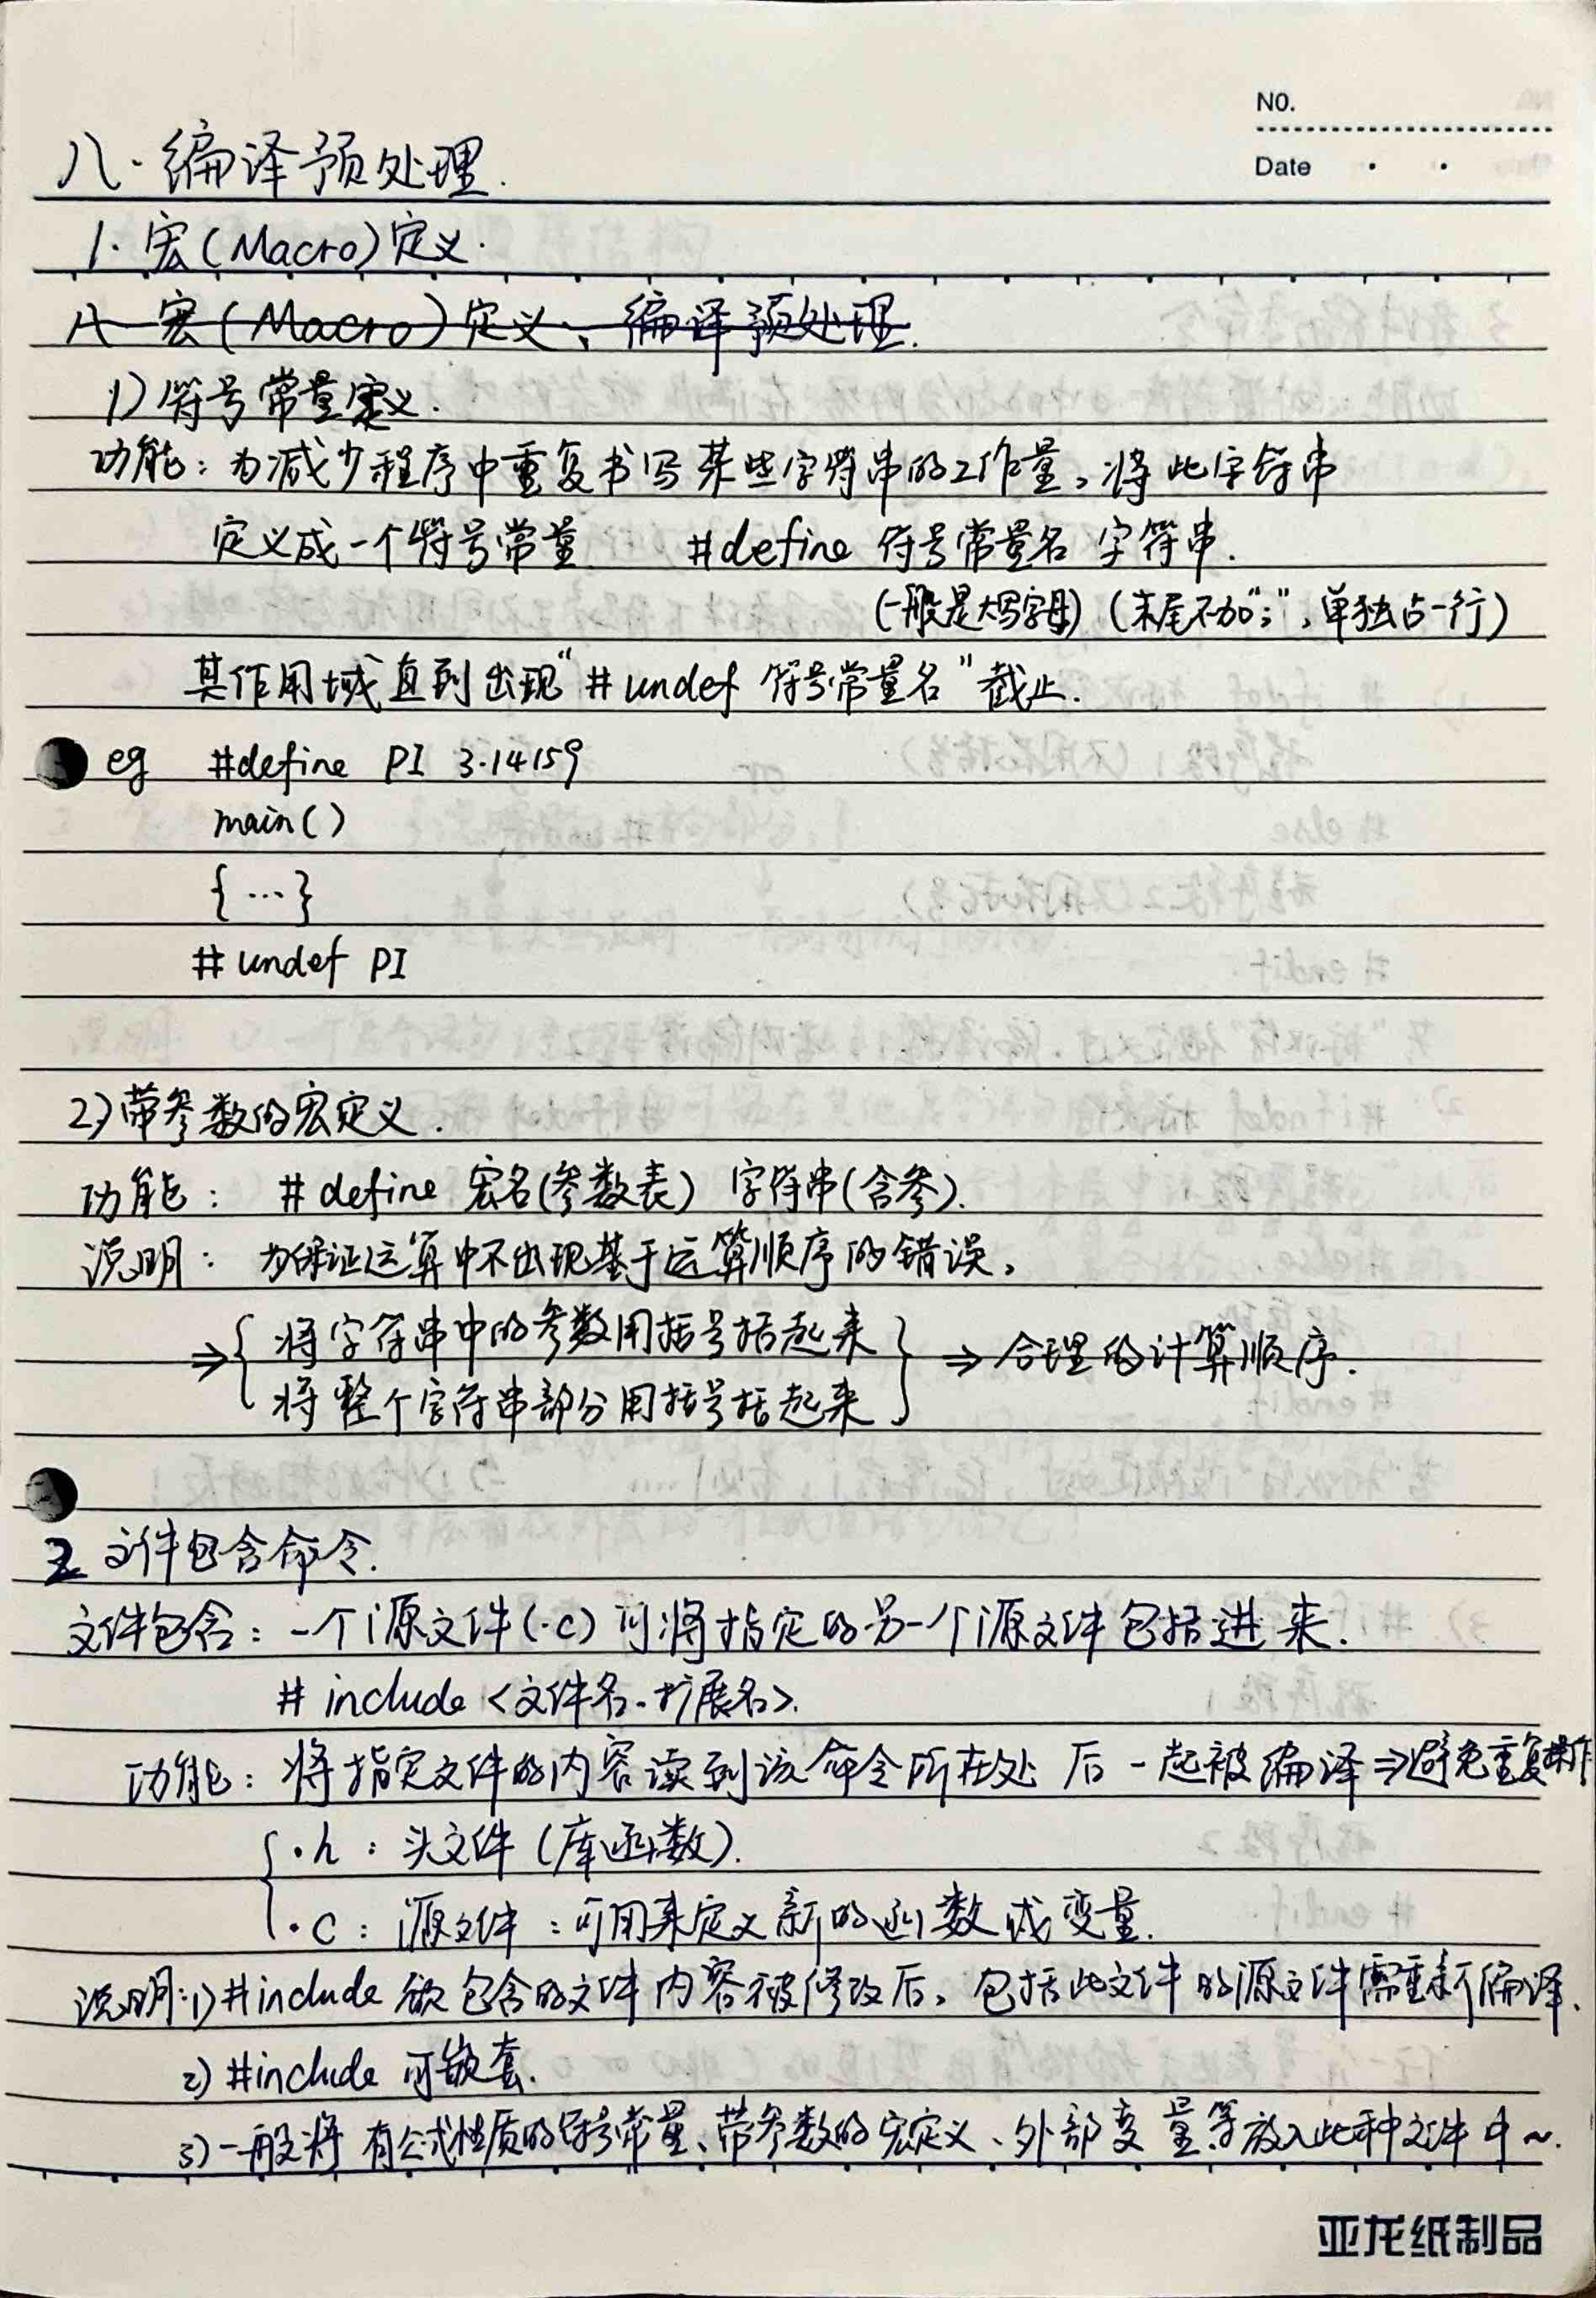 NO.
Date · ·
八·编译预处理.
1·宏(Macro)定义·
八 宏(Macro)定义、编译预处理.
1)符号常量定义.
功能：为减少程序中重复书写某些字符串的工作量，将此字符串
定义成一个符号常量 #define 符号常量名 字符串.
(一般是大写字母) (末尾不加";",单独占一行)
其作用域直到出现"#undef 符号常量名"截止.
eg #define PI 3.14159
main()
{ … }
#undef PI
2)带参数的宏定义.
功能： #define 宏名(参数表) 字符串(含参).
说明： 为保证运算中不出现基于运算顺序的错误，
⇒{ 将字符串中的参数用括号括起来 } ⇒合理的计算顺序.
将整个字符串部分用括号括起来
2 文件包含命令.
文件包含：一个源文件(.c)可将指定的另一个源文件包括进来.
#include <文件名.扩展名>.
功能：将指定文件的内容读到该命令所在处 后一起被编译⇒避免重复操作
{ ·h：头文件(库函数).
·c：源文件：可用来定义新的函数或变量.
说明:1)#include 欲包含的文件内容被修改后，包括此文件的源文件需重新编译.
2) #include 可嵌套.
3)一般将有公式性质的符号常量、带参数的宏定义、外部变量等放入此种文件中~.
亚龙纸制品